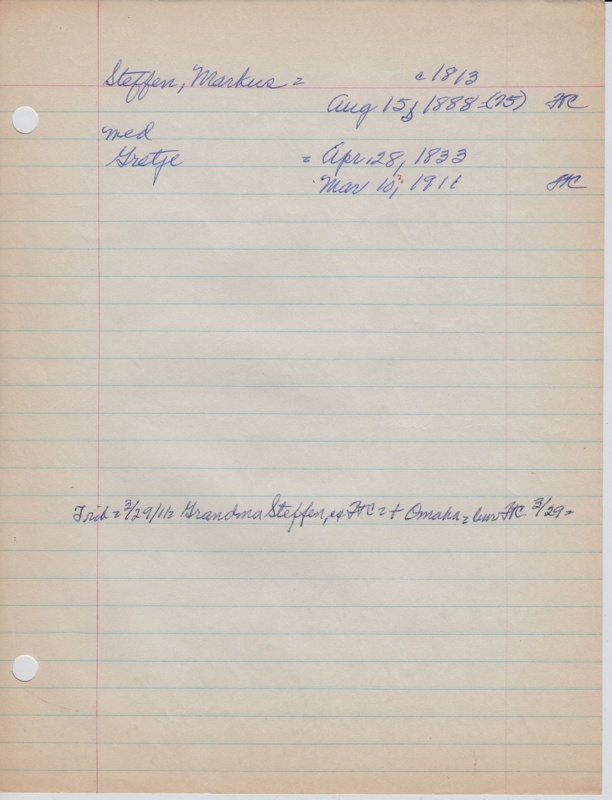 Steffen, Markus = c 1813
Aug 15, 1888 (75) FC
med
Gretje = Apr. 28, 1833
Mar 10,? 1911 FC
Trib = 3/29/11 = Grandma Steffen, FC = + Omaha = bur FC 3/29 =